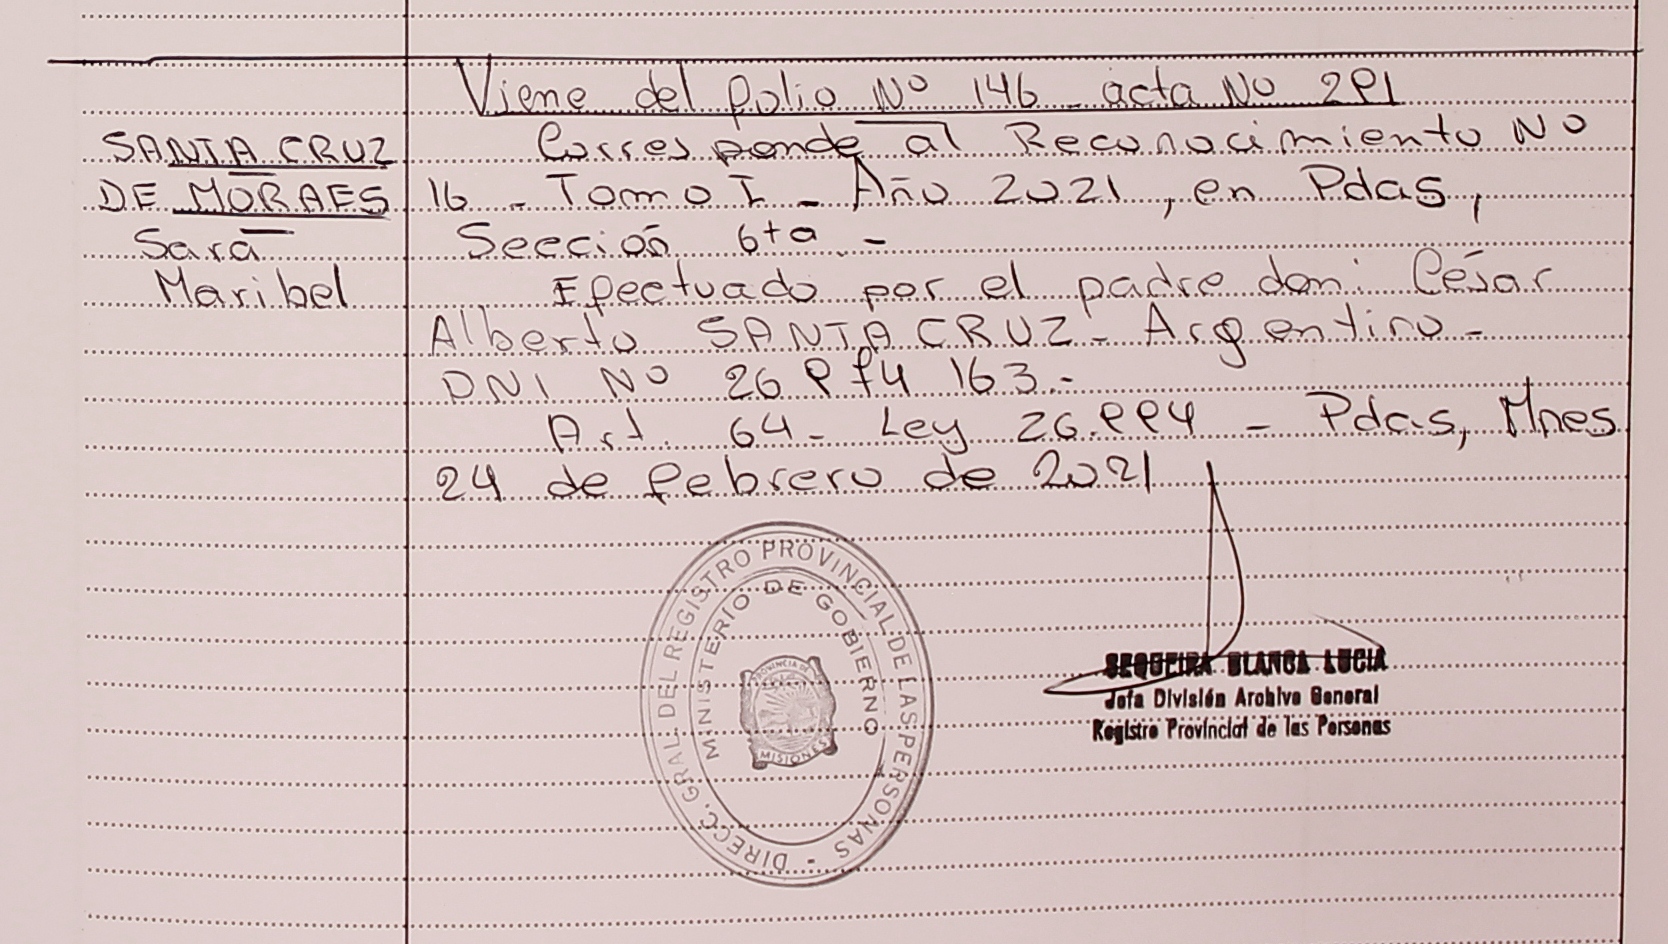 SANTA CRUZ
DE MORAES
Sara
Maribel
Viene del folio Nº 146 - acta Nº 291
Corresponde al Reconocimiento Nº
16 - Tomo I - Año 2021, en Pdas,
Sección 6ta -
Efectuado por el padre don: César
Alberto SANTA CRUZ - Argentino -
DNI Nº 26 974 163.-
Art. 64 - Ley 26.994 - Pdas, Mnes
24 de febrero de 2021
DIRECC. GRAL. DEL REGISTRO PROVINCIAL DE LAS PERSONAS -
MINISTERIO DE GOBIERNO
PROVINCIA DE
MISIONES
SEQUEIRA BLANCA LUCIA
Jefa División Archivo General
Registro Provincial de las Personas